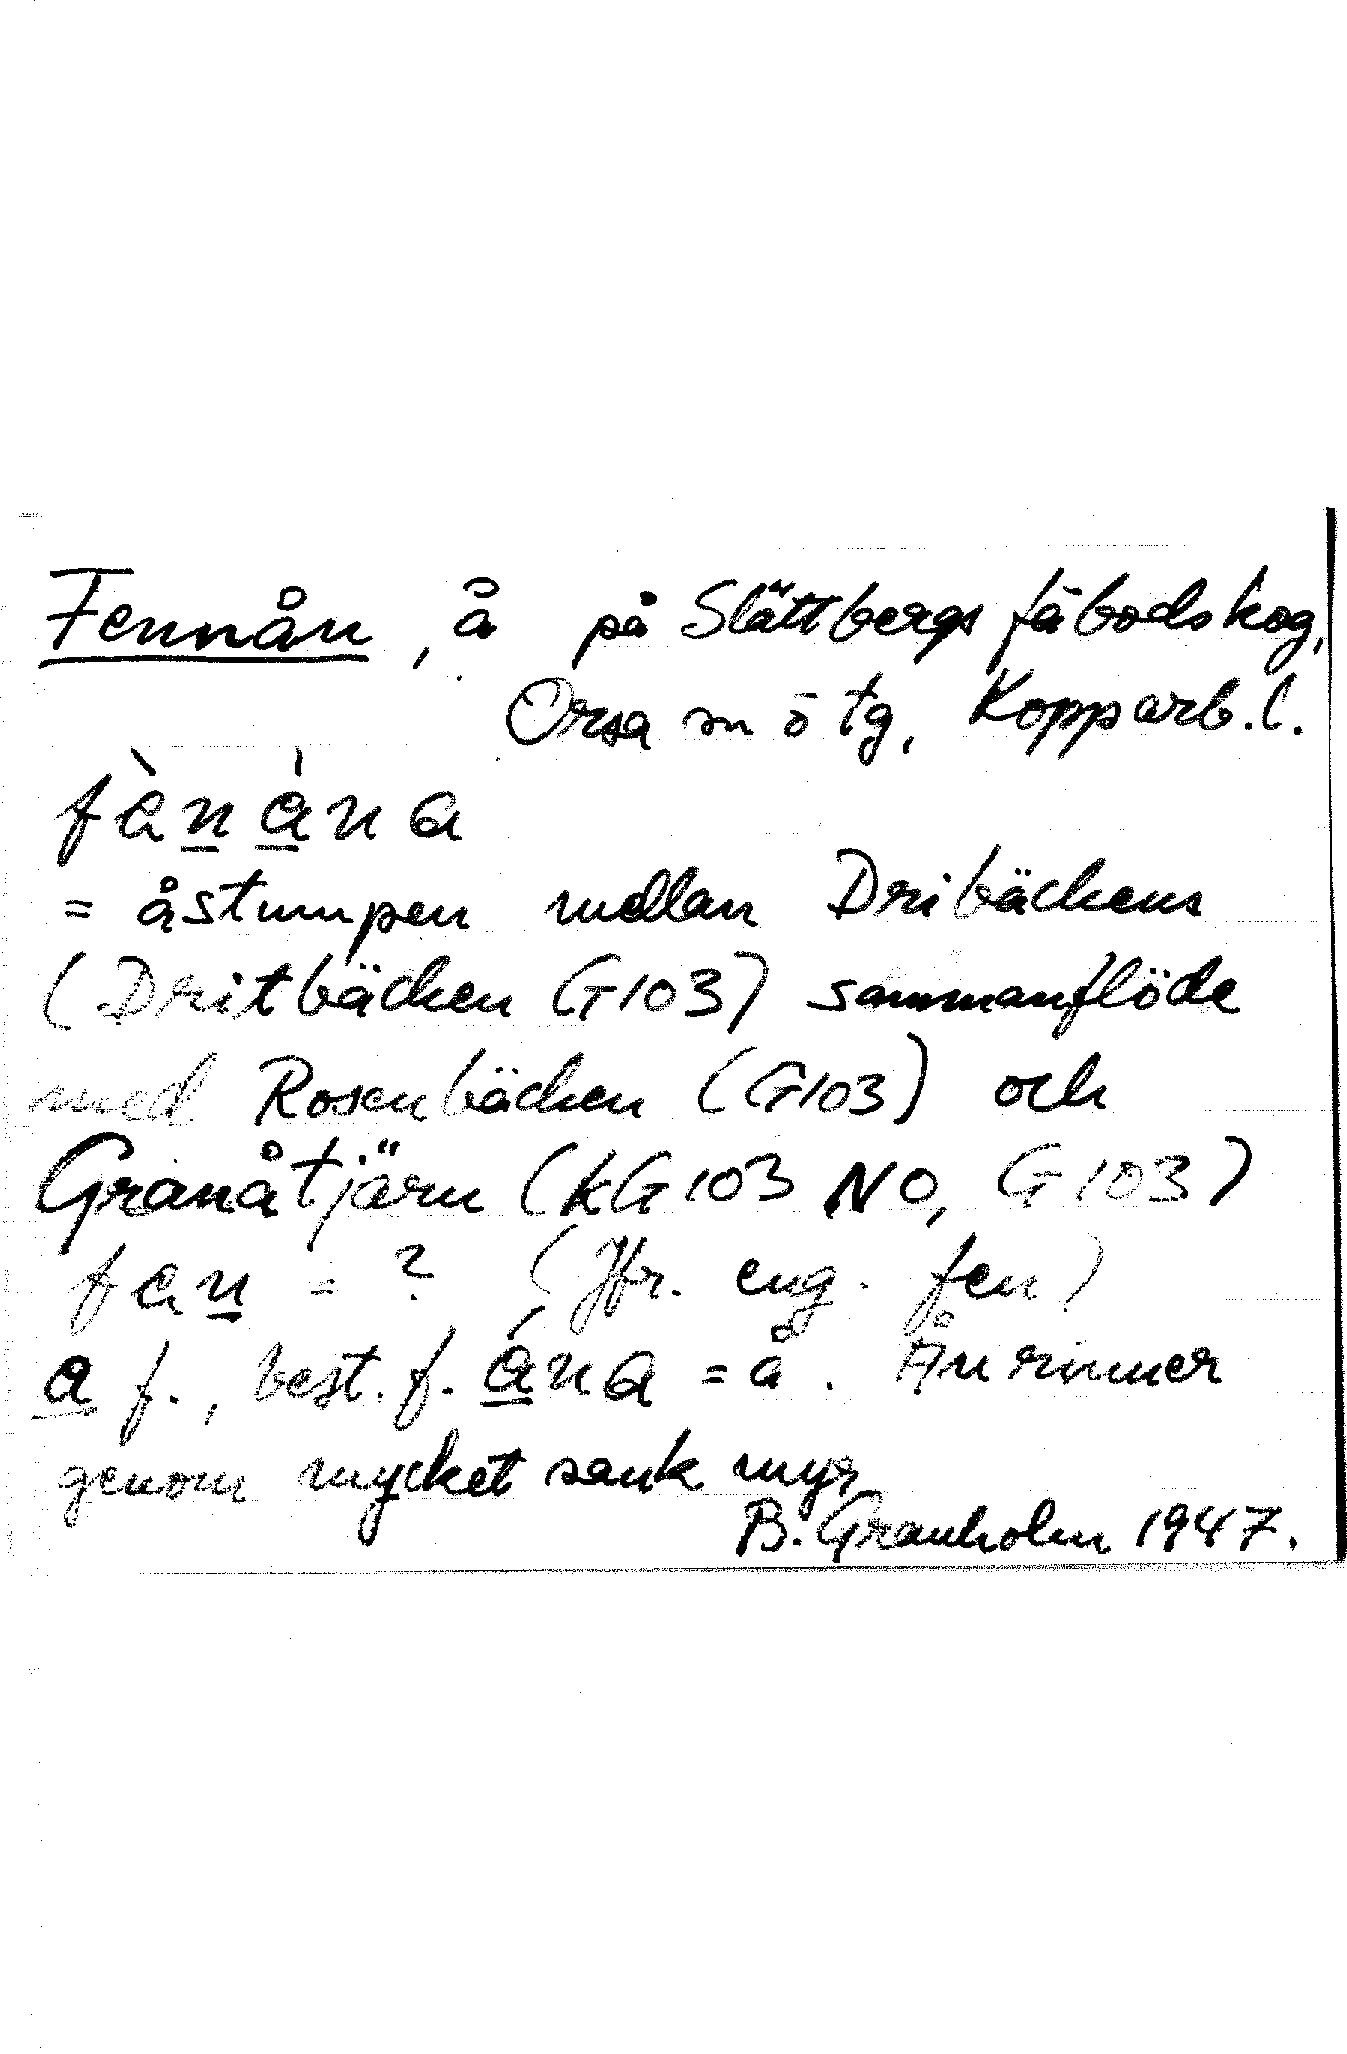 Fennån, å på Slättbergs fäbodskog,
Orsa sn ö tg, Kopparb.l.
fὲnána
= åstumpen mellan Dribäckens
(Dritbäcken G103) sammanflöde
med Rosenbäcken (G103) och
Granåtjärn (kG103 NO, G103)
fεn = ? (Jfr. eng. fen)
a f., best. f. ána = å. Ån rinner
genom mycket sank myr
B. Granholm 1947.